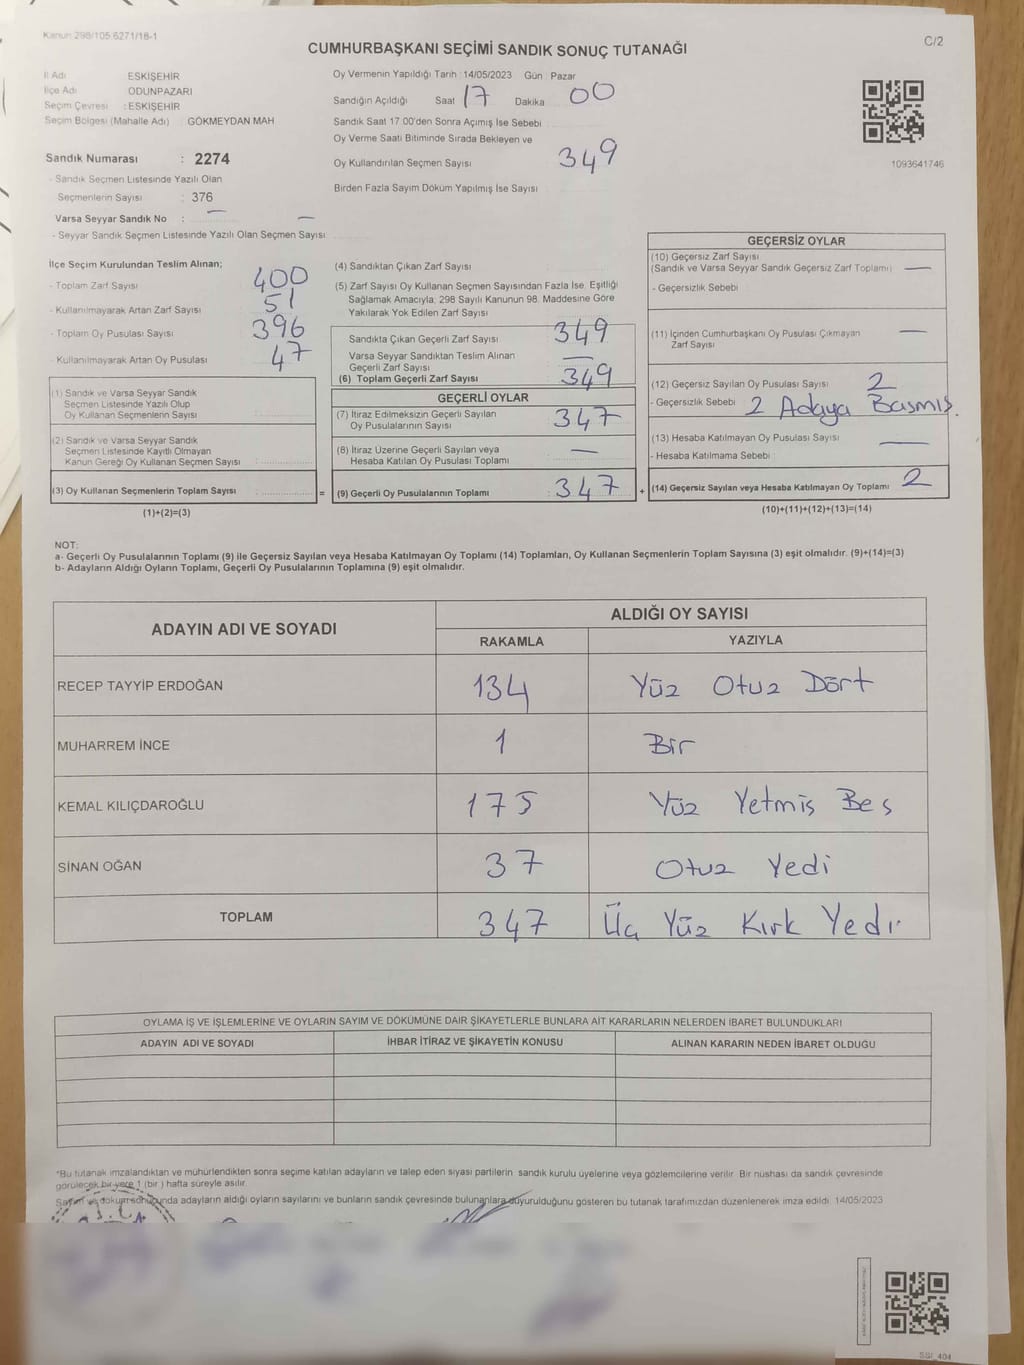 Kanun 298/105 6271/18-1
C/2
CUMHURBAŞKANI SEÇİMİ SANDIK SONUÇ TUTANAĞI
İl Adı ESKİŞEHİR
İlçe Adı ODUNPAZARI
Seçim Çevresi : ESKİŞEHİR
Seçim Bölgesi (Mahalle Adı) : GÖKMEYDAN MAH
Sandık Numarası : 2274
- Sandık Seçmen Listesinde Yazılı Olan
Seçmenlerin Sayısı : 376
Varsa Seyyar Sandık No : —
- Seyyar Sandık Seçmen Listesinde Yazılı Olan Seçmen Sayısı —
Oy Vermenin Yapıldığı Tarih : 14/05/2023 Gün : Pazar
Sandığın Açıldığı Saat 17 Dakika 00
Sandık Saat 17:00'den Sonra Açımış İse Sebebi
Oy Verme Saati Bitiminde Sırada Bekleyen ve
Oy Kullandırılan Seçmen Sayısı 349
Birden Fazla Sayım Döküm Yapılmış İse Sayısı
1093641746
İlçe Seçim Kurulundan Teslim Alınan;
- Toplam Zarf Sayısı 400
- Kullanılmayarak Artan Zarf Sayısı 51
- Toplam Oy Pusulası Sayısı 396
- Kullanılmayarak Artan Oy Pusulası 47
(1) Sandık ve Varsa Seyyar Sandık
Seçmen Listesinde Yazılı Olup
Oy Kullanan Seçmenlerin Sayısı
(2) Sandık ve Varsa Seyyar Sandık
Seçmen Listesinde Kayıtlı Olmayan
Kanun Gereği Oy Kullanan Seçmen Sayısı
(3) Oy Kullanan Seçmenlerin Toplam Sayısı =
(1)+(2)=(3)
(4) Sandıktan Çıkan Zarf Sayısı
(5) Zarf Sayısı Oy Kullanan Seçmen Sayısından Fazla İse, Eşitliği
Sağlamak Amacıyla, 298 Sayılı Kanunun 98. Maddesine Göre
Yakılarak Yok Edilen Zarf Sayısı
Sandıkta Çıkan Geçerli Zarf Sayısı 349
Varsa Seyyar Sandıktan Teslim Alınan
Geçerli Zarf Sayısı —
(6) Toplam Geçerli Zarf Sayısı 349
GEÇERLİ OYLAR
(7) İtiraz Edilmeksizin Geçerli Sayılan
Oy Pusulalarının Sayısı 347
(8) İtiraz Üzerine Geçerli Sayılan veya
Hesaba Katılan Oy Pusulası Toplamı —
(9) Geçerli Oy Pusulalarının Toplamı 347 +
GEÇERSİZ OYLAR
(10) Geçersiz Zarf Sayısı
(Sandık ve Varsa Seyyar Sandık Geçersiz Zarf Toplamı) —
- Geçersizlik Sebebi
(11) İçinden Cumhurbaşkanı Oy Pusulası Çıkmayan
Zarf Sayısı —
(12) Geçersiz Sayılan Oy Pusulası Sayısı 2
- Geçersizlik Sebebi 2 Adaya Basmış.
(13) Hesaba Katılmayan Oy Pusulası Sayısı —
- Hesaba Katılmama Sebebi
(14) Geçersiz Sayılan veya Hesaba Katılmayan Oy Toplamı 2
(10)+(11)+(12)+(13)=(14)
NOT:
a- Geçerli Oy Pusulalarının Toplamı (9) ile Geçersiz Sayılan veya Hesaba Katılmayan Oy Toplamı (14) Toplamları, Oy Kullanan Seçmenlerin Toplam Sayısına (3) eşit olmalıdır. (9)+(14)=(3)
b- Adayların Aldığı Oyların Toplamı, Geçerli Oy Pusulalarının Toplamına (9) eşit olmalıdır.
ADAYIN ADI VE SOYADI
ALDIĞI OY SAYISI
RAKAMLA YAZIYLA
RECEP TAYYİP ERDOĞAN 134 Yüz Otuz Dört
MUHARREM İNCE 1 Bir
KEMAL KILIÇDAROĞLU 175 Yüz Yetmiş Beş
SİNAN OĞAN 37 Otuz Yedi
TOPLAM 347 Üç Yüz Kırk Yedi
OYLAMA İŞ VE İŞLEMLERİNE VE OYLARIN SAYIM VE DÖKÜMÜNE DAİR ŞİKAYETLERLE BUNLARA AİT KARARLARIN NELERDEN İBARET BULUNDUKLARI
ADAYIN ADI VE SOYADI İHBAR İTİRAZ VE ŞİKAYETİN KONUSU ALINAN KARARIN NEDEN İBARET OLDUĞU
*Bu tutanak imzalandıktan ve mühürlendikten sonra seçime katılan adayların ve talep eden siyasi partilerin sandık kurulu üyelerine veya gözlemcilerine verilir. Bir nüshası da sandık çevresinde
görülecek bir yere 1 (bir) hafta süreyle asılır.
Sayım ve döküm sonucunda adayların aldığı oyların sayılarını ve bunların sandık çevresinde bulunanlara duyurulduğunu gösteren bu tutanak tarafımızdan düzenlenerek imza edildi. 14/05/2023
T.C.